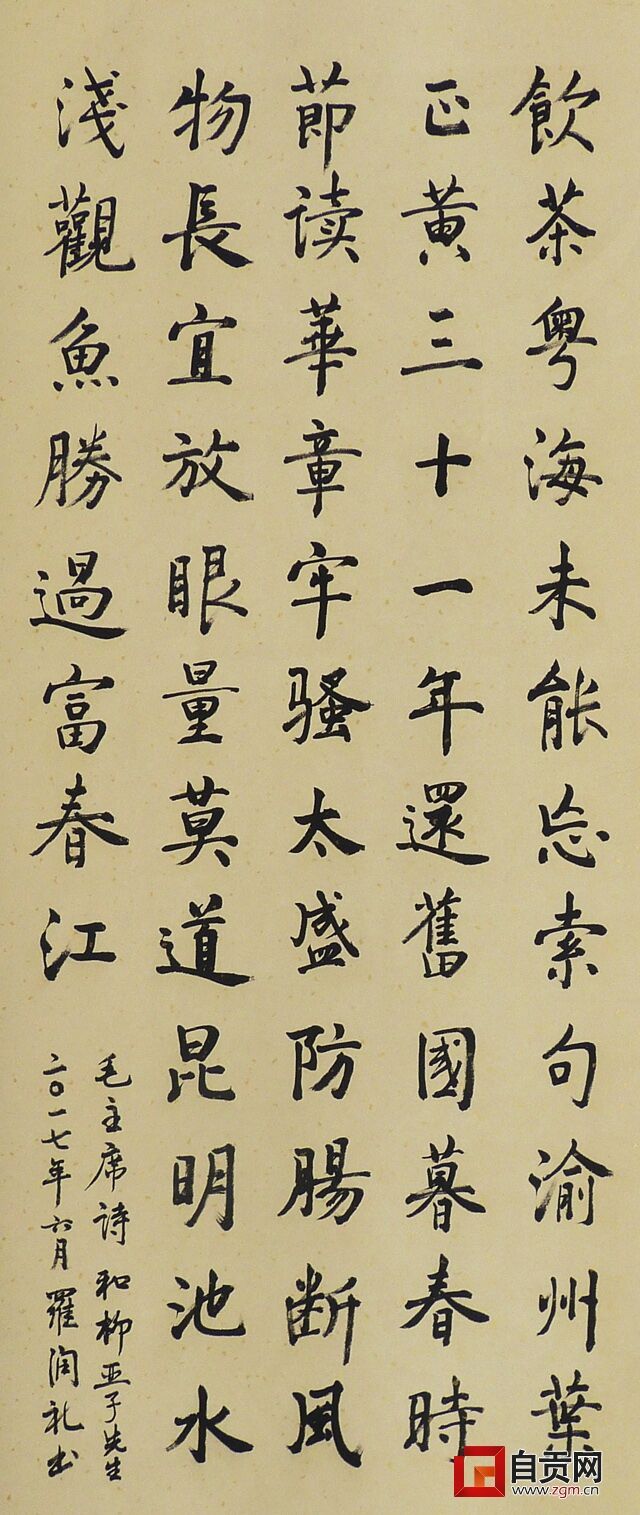 飲茶粤海未能忘索句渝州葉
正黄三十一年還舊國暮春時
節读華章牢騷太盛防腸断風
物長宜放眼量莫道昆明池水
淺觀魚勝過富春江
毛主席诗和柳亚子先生
二〇一七年六月羅润礼书
自贡网
www.zgm.cn